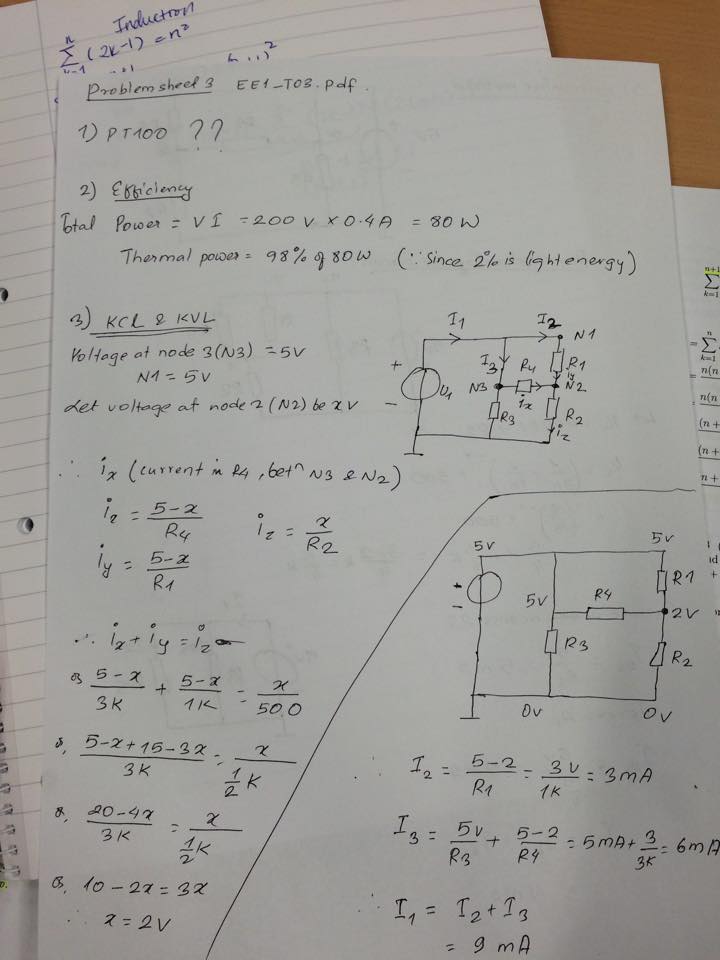 Induction
n
∑ (2k-1) = n²
k=1
Problem sheet 3 EE1_T03.pdf.
1) PT100 ??
2) Efficiency
Total Power = VI = 200 V × 0.4 A = 80 W
Thermal power = 98% of 80W (∵ Since 2% is light energy)
3) KCL & KVL
Voltage at node 3 (N3) = 5V
N1 = 5V
Let voltage at node 2 (N2) be x V
I1 I2 N1
I3 R4 R1
+ iy
U1 N3 ix N2
- R3 R2
iz
∴ ix (current in R4, betn N3 & N2)
iz = 5-x / R4 iz = x / R2
iy = 5-x / R1
∴ ix + iy = iz
5-x / 3K + 5-x / 1K = x / 500
5-x+15-3x / 3K = x / ½K
20-4x / 3K = x / ½K
10-2x = 3x
∴ x = 2V
5V 5V
+ R1
- 5V R4 2V
R3 R2
0V 0V
∴ I2 = 5-2 / R1 = 3V / 1K = 3mA
I3 = 5V / R3 + 5-2 / R4 = 5mA + 3 / 3K = 6mA
∴ I1 = I2 + I3
= 9 mA
n+1
∑
k=1
n
= ∑
k=1
n(n
= n(n
(n +
(n +
n +